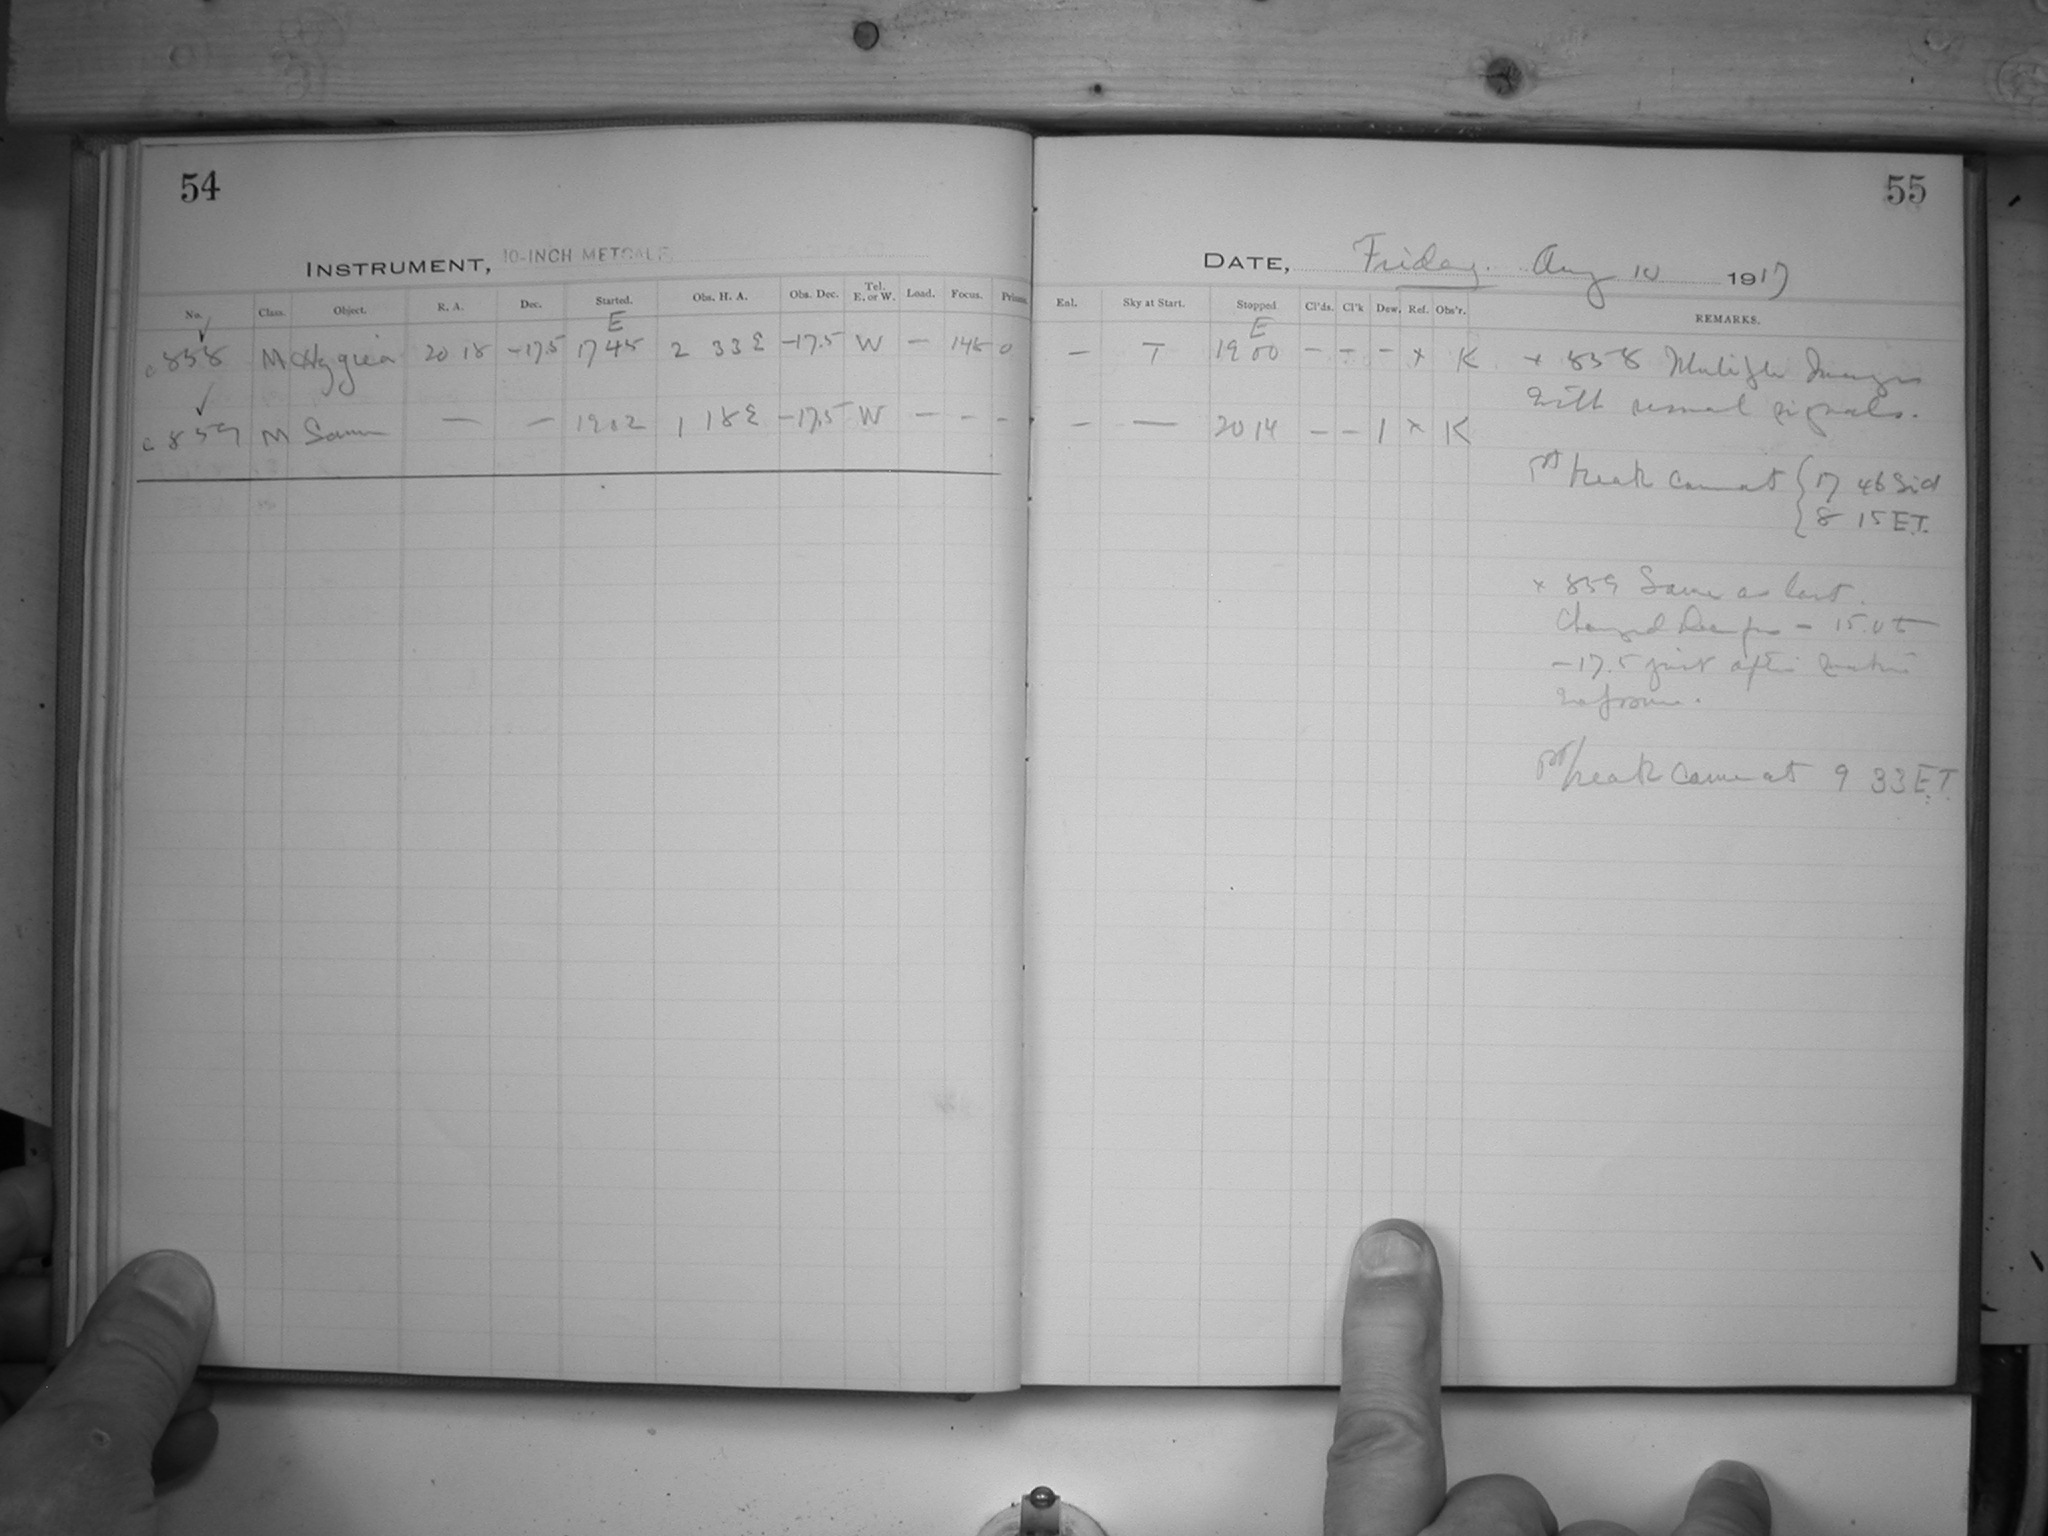 54
INSTRUMENT, 10-INCH METCALF
No. Class. Object. R. A. Dec. Started. Obs. H. A. Obs. Dec. Tel. E. or W. Load. Focus. Prisms.
E
c 858 M Hygiea 20 18 -17.5 17 45 2 33 E -17.5 W — 14.5 0
c 859 M Same — — 19 02 1 18 E -17.5 W — — —
55
DATE, Friday. Aug 10 1917
Eal. Sky at Start. Stopped Cl'ds. Cl'k Dew. Ref. Obs'r. REMARKS.
E
— T 19 00 — — — x K
— — 20 14 — — 1 x K
x 858 Multiple Images
with usual signals.
break came at { 17 46 Sid
{ 8 15 E.T.
x 859 Same as last.
Changed Dec from - 15.0 to
-17.5 just after
break came at 9 33 E.T.